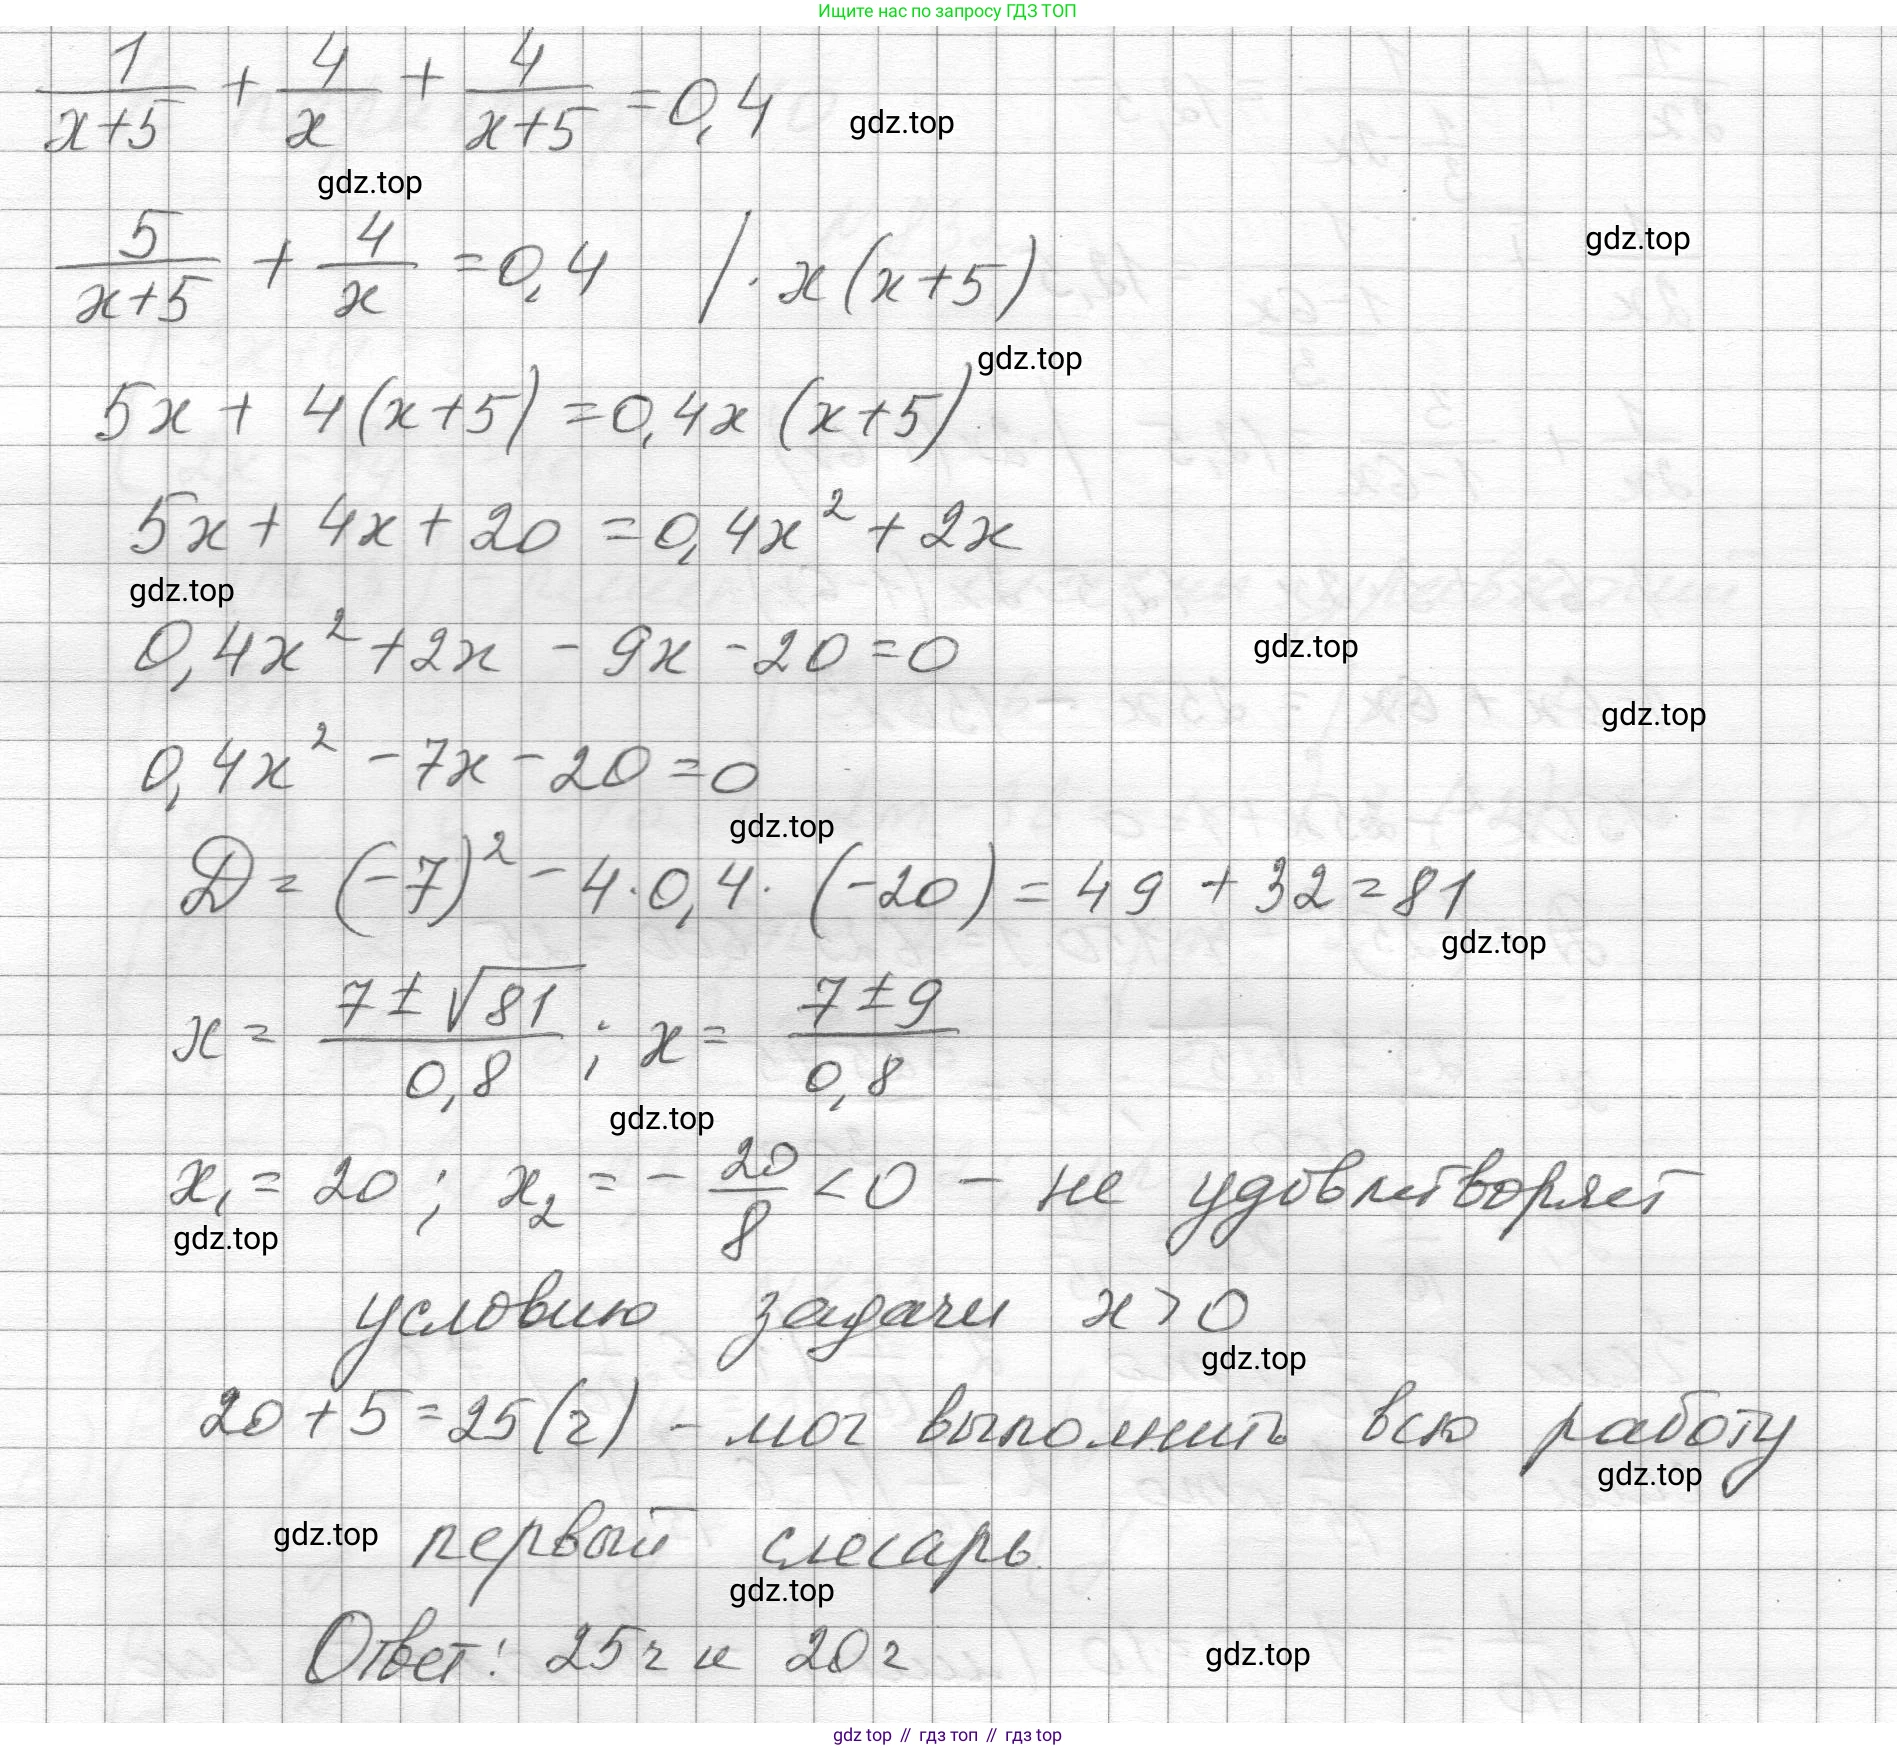 Ищите нас по запросу ГДЗ ТОП
1/(x+5) + 4/x + 4/(x+5) = 0,4
gdz.top
gdz.top
5/(x+5) + 4/x = 0,4 / · x(x+5)
gdz.top
gdz.top
5x + 4(x+5) = 0,4x (x+5)
5x + 4x + 20 = 0,4x² + 2x
gdz.top
0,4x² + 2x - 9x - 20 = 0
gdz.top
gdz.top
0,4x² - 7x - 20 = 0
gdz.top
D = (-7)² - 4·0,4·(-20) = 49 + 32 = 81
gdz.top
x = (7 ± √81)/0,8 ; x = (7 ± 9)/0,8
gdz.top
x₁ = 20 ; x₂ = - 20/8 < 0 - не удовлетворяет
gdz.top
условию задачи x > 0
gdz.top
20 + 5 = 25 (ч) - мог выполнить всю работу
gdz.top
gdz.top
первый слесарь.
gdz.top
Ответ: 25 ч и 20 ч
gdz.top
gdz top // гдз топ // гдз top